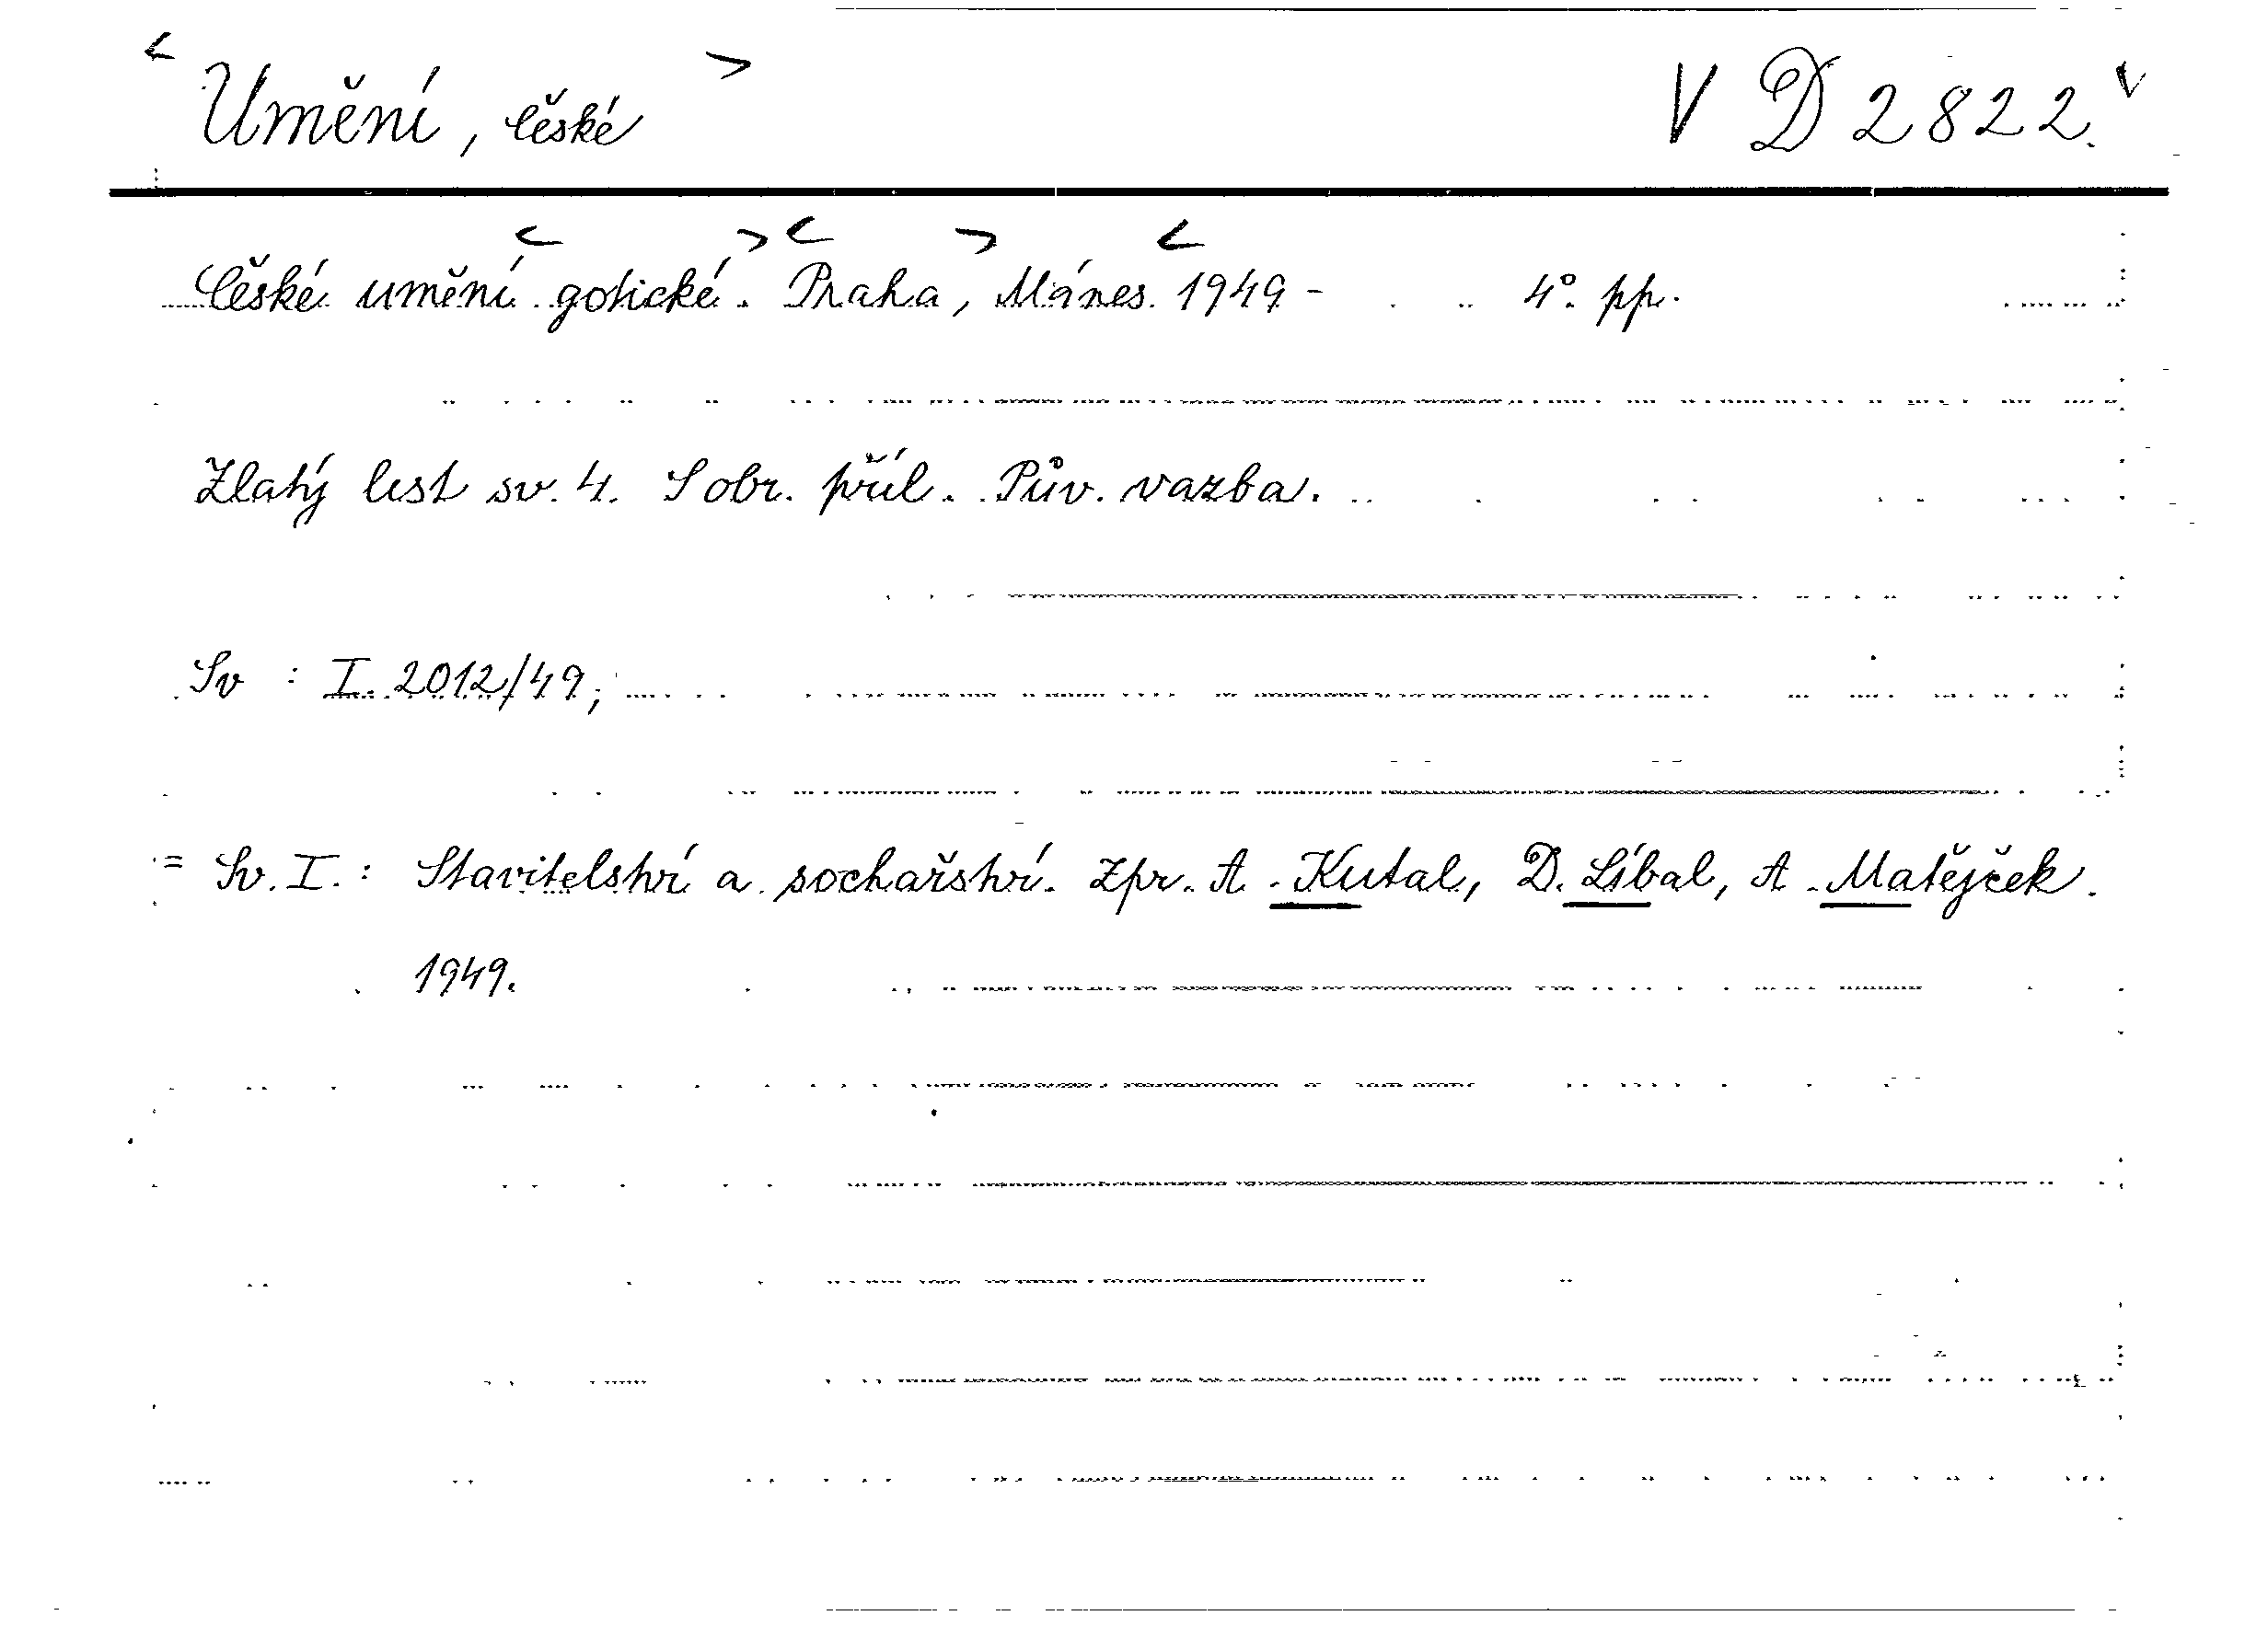 < Umění, české > V D 2822. v
České umění < gotické. > < Praha, > Mánes < 1949 - 4°. pp.
Zlatý list sv. 4. S obr. příl. Pův. vazba.
Sv : I. 2012/49;
= Sv. I. : Stavitelství a sochařství. Zpr. A. Kutal, D. Líbal, A. Matějček.
1949.